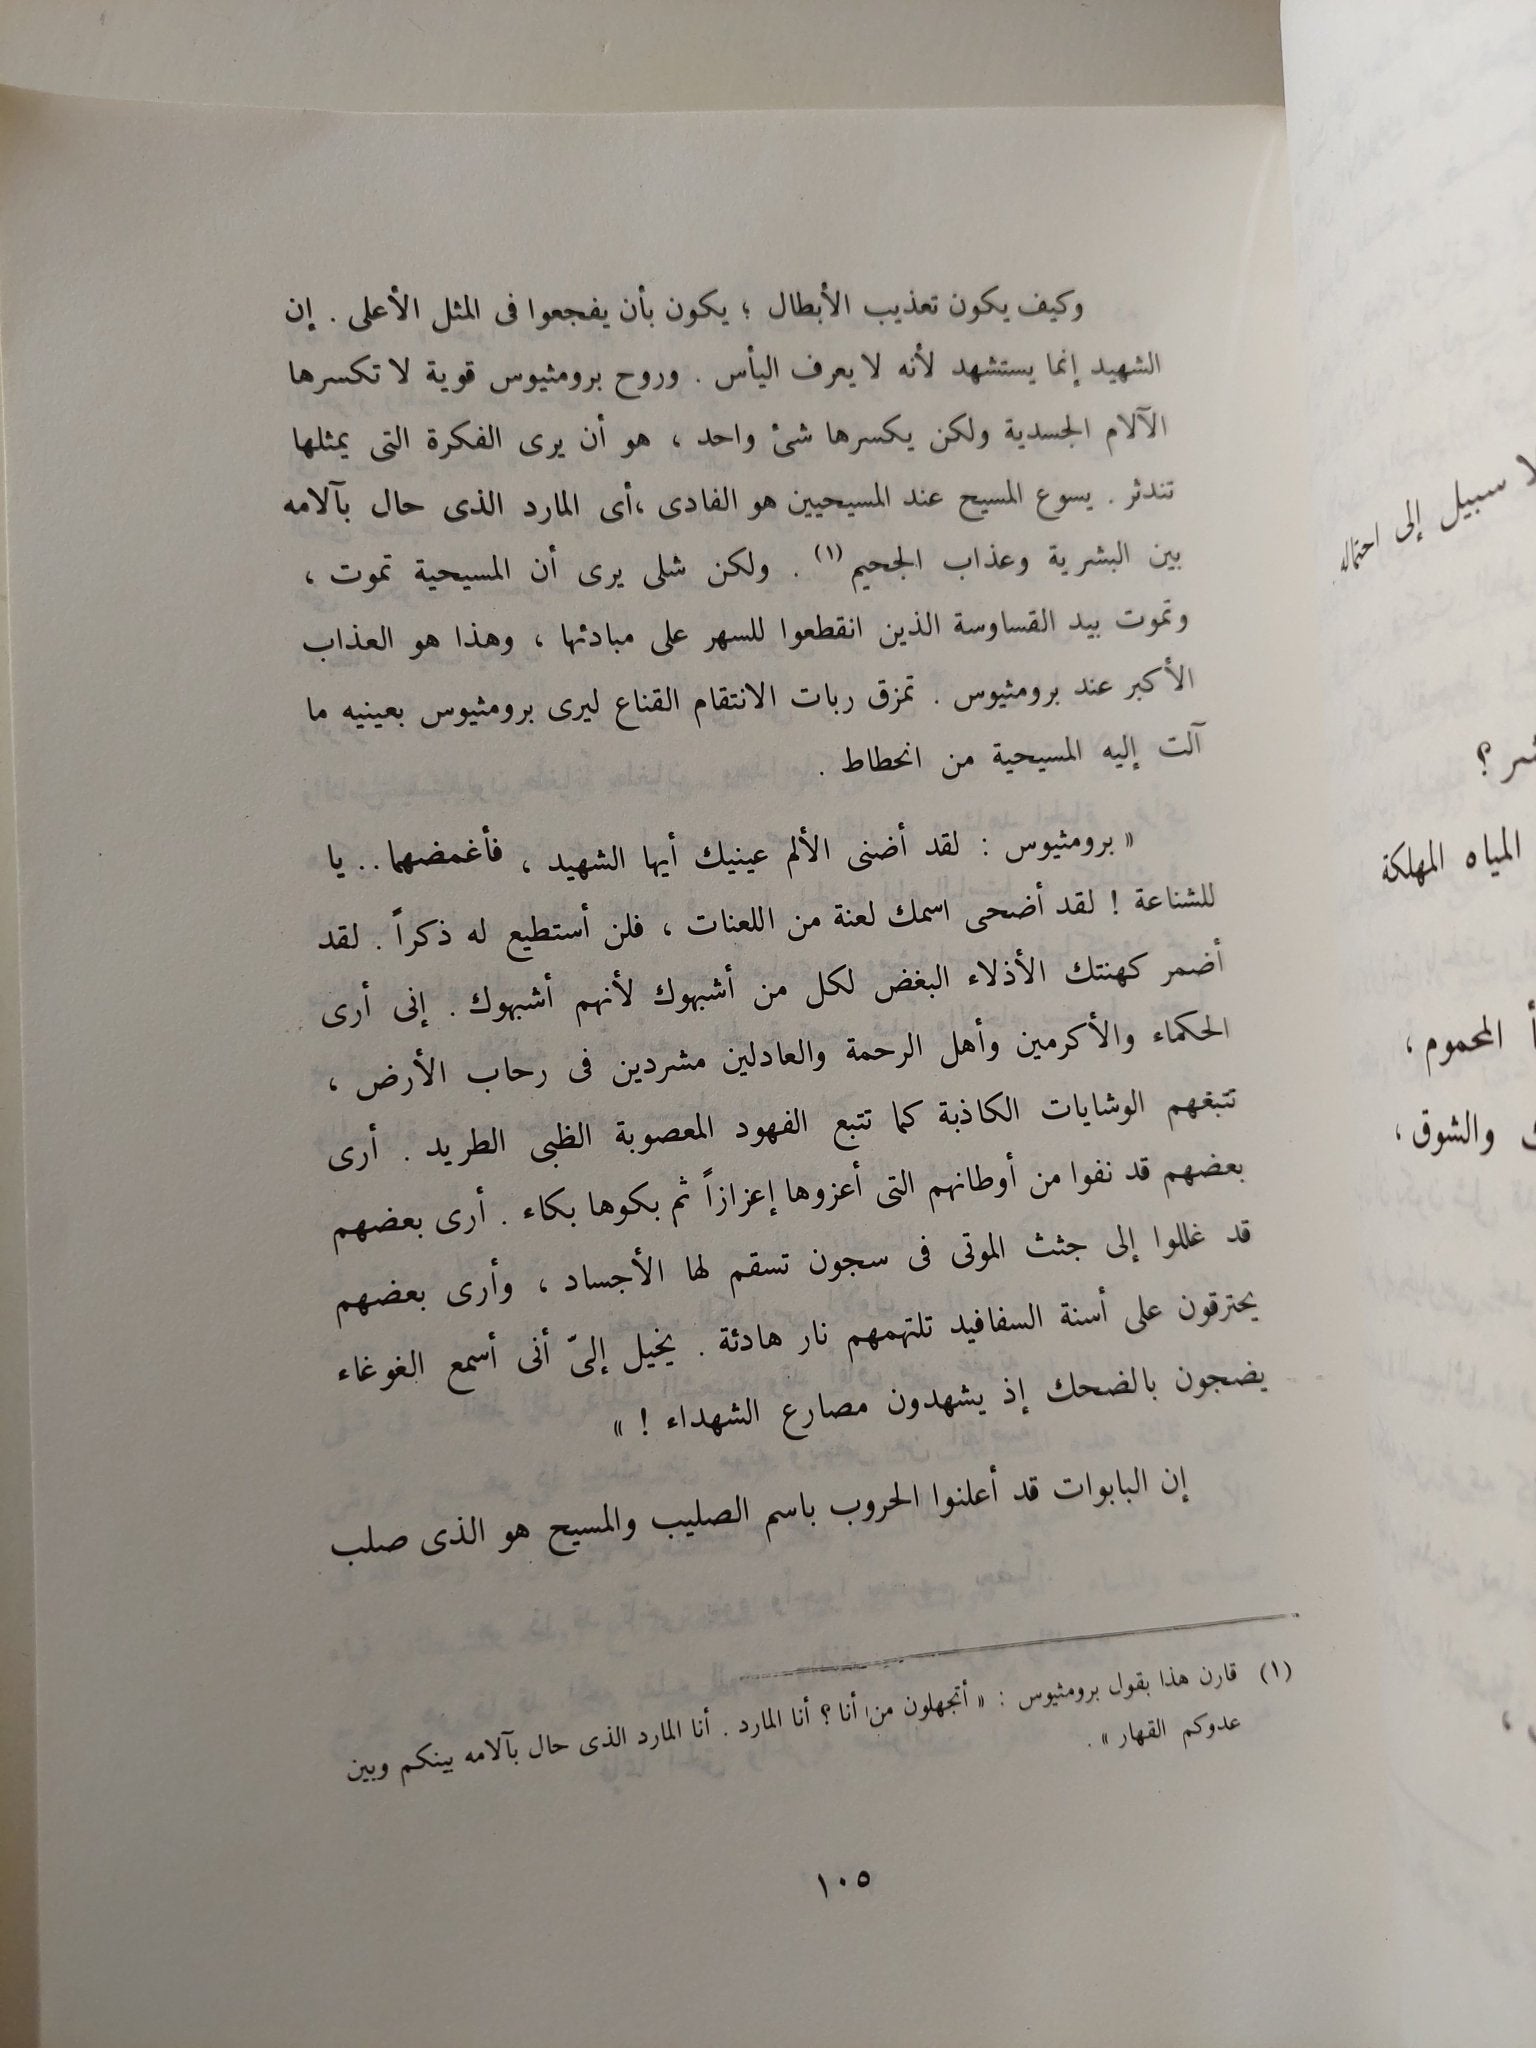 وكيف يكون تعذيب الأبطال ؛ يكون بأن يفجعوا فى المثل الأعلى . إن
الشهيد إنما يستشهد لأنه لا يعرف اليأس . وروح برومثيوس قوية لا تكسرها
الآلام الجسدية ولكن يكسرها شئ واحد ، هو أن يرى الفكرة التى يمثلها
تندثر . يسوع المسيح عند المسيحيين هو الفادى ،أى المارد الذى حال بآلامه
بين البشرية وعذاب الجحيم (١) . ولكن شلى يرى أن المسيحية تموت ،
وتموت بيد القساوسة الذين انقطعوا للسهر على مبادئها ، وهذا هو العذاب
الأكبر عند برومثيوس . تمزق ربات الانتقام القناع ليرى برومثيوس بعينيه ما
آلت إليه المسيحية من انحطاط .
« برومثيوس : لقد أضنى الألم عينيك أيها الشهيد ، فأغمضهما .. يا
للشناعة ! لقد أضحى اسمك لعنة من اللعنات ، فلن أستطيع له ذكراً . لقد
أضمر كهنتك الأذلاء البغض لكل من أشبهوك لأنهم أشبهوك . إنى أرى
الحكماء والأكرمين وأهل الرحمة والعادلين مشردين فى رحاب الأرض ،
تتبعهم الوشايات الكاذبة كما تتبع الفهود المعصوبة الظبى الطريد . أرى
بعضهم قد نفوا من أوطانهم التى أعزوها إعزازاً ثم بكوها بكاء . أرى بعضهم
قد غللوا إلى جثث الموتى فى سجون تسقم لها الأجساد ، وأرى بعضهم
يحترقون على أسنة السفافيد تلتهمهم نار هادئة . يخيل إلىّ أنى أسمع الغوغاء
يضجون بالضحك إذ يشهدون مصارع الشهداء ! »
إن البابوات قد أعلنوا الحروب باسم الصليب والمسيح هو الذى صلب
(١) قارن هذا بقول برومثيوس : « أتجهلون من أنا ؟ أنا المارد . أنا المارد الذى حال بآلامه بينكم وبين
عدوكم القهار » .
١٠٥
لا سبيل إلى احتماله
المياه المهلكة
المحموم ،
والشوق ،